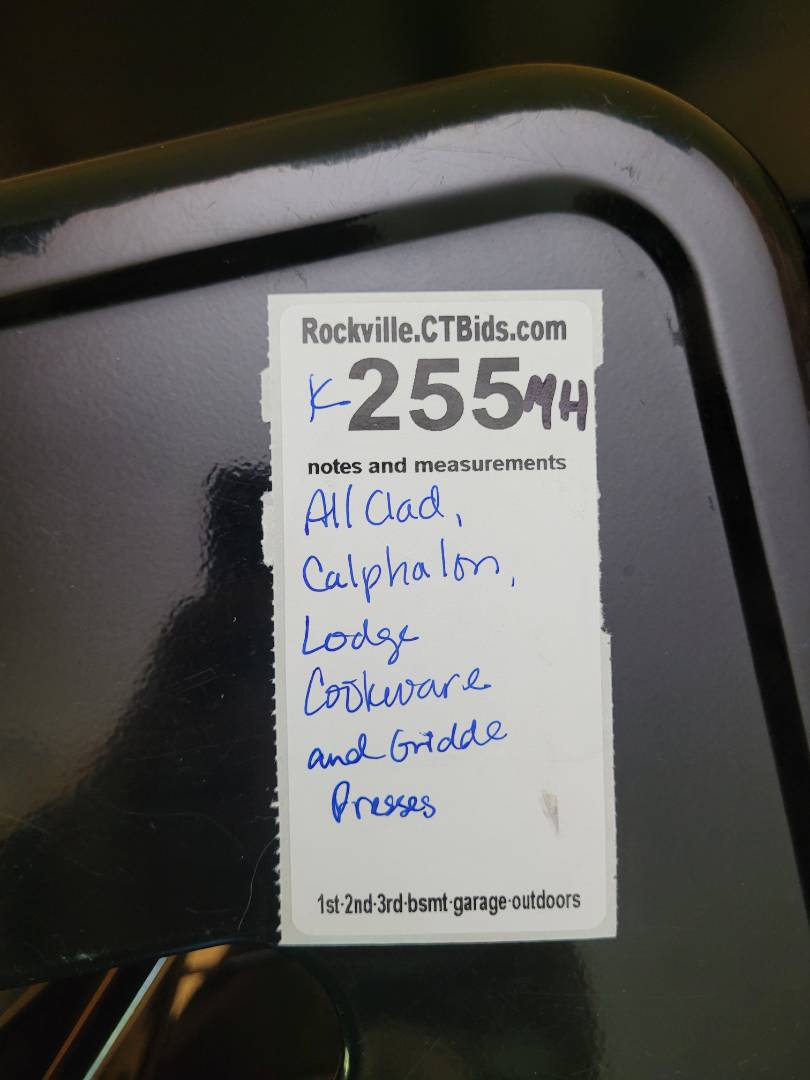 Rockville.CTBids.com
K255MH
notes and measurements
All Clad,
Calphalon,
Lodge
Cookware
and Gridde
Presses
1st·2nd·3rd·bsmt·garage·outdoors